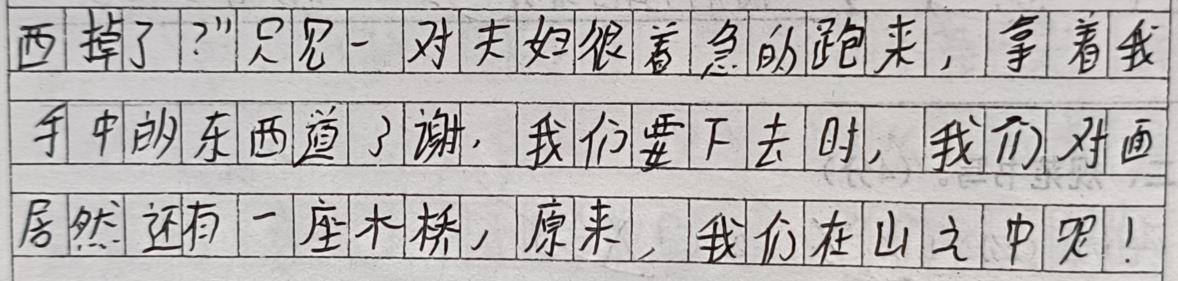 西掉了？”只见一对夫妇很着急的跑来，拿着我
手中的东西道了谢．我们要下去时，我们对面
居然还有一座木桥，原来，我们在山之中呢！